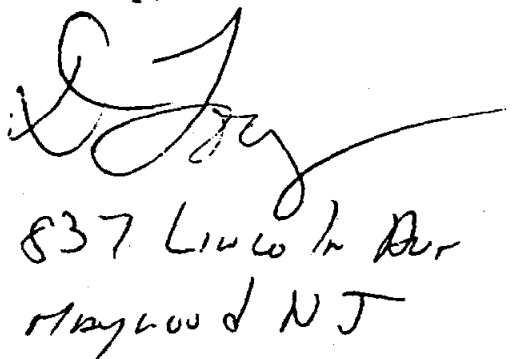 837 Lincoln Ave
Maywood NJ